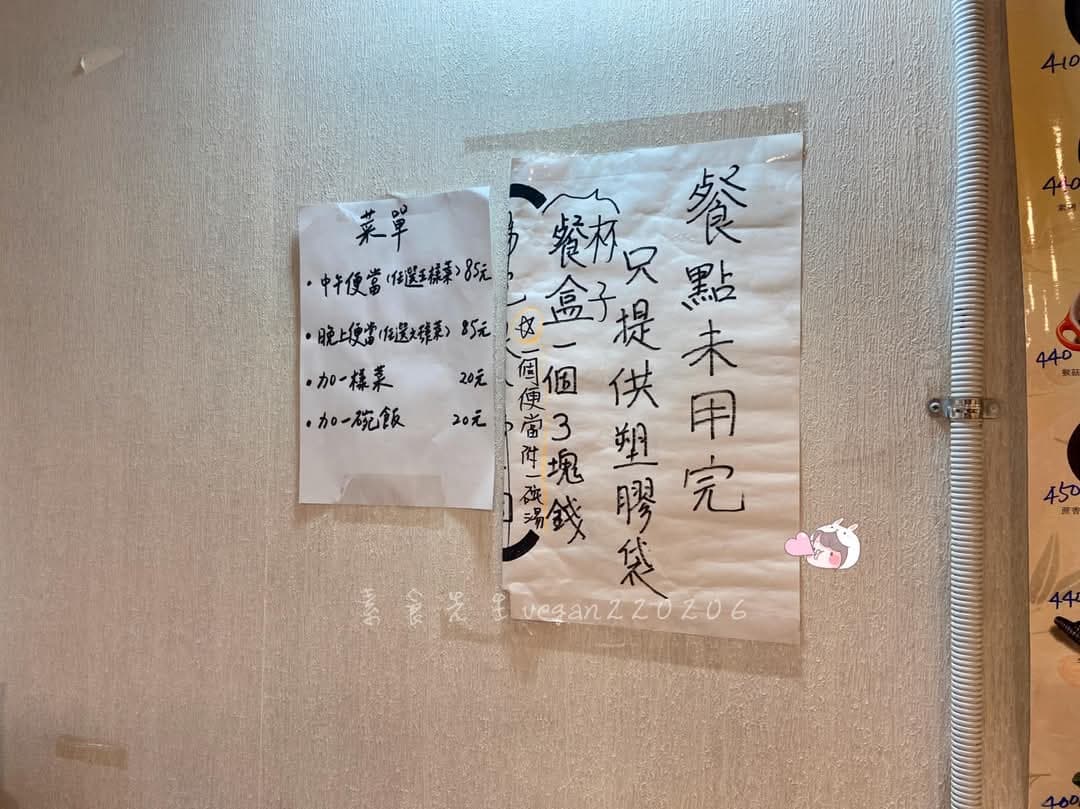 菜單
• 中午便當(任選五樣菜) 85元
• 晚上便當(任選六樣菜) 85元
• 加一樣菜 20元
• 加一碗飯 20元
餐點未用完
只提供塑膠袋
杯子
餐盒一個3塊錢
一個便當附一碗湯
素食先生vegan220206
410
440
440
450
440